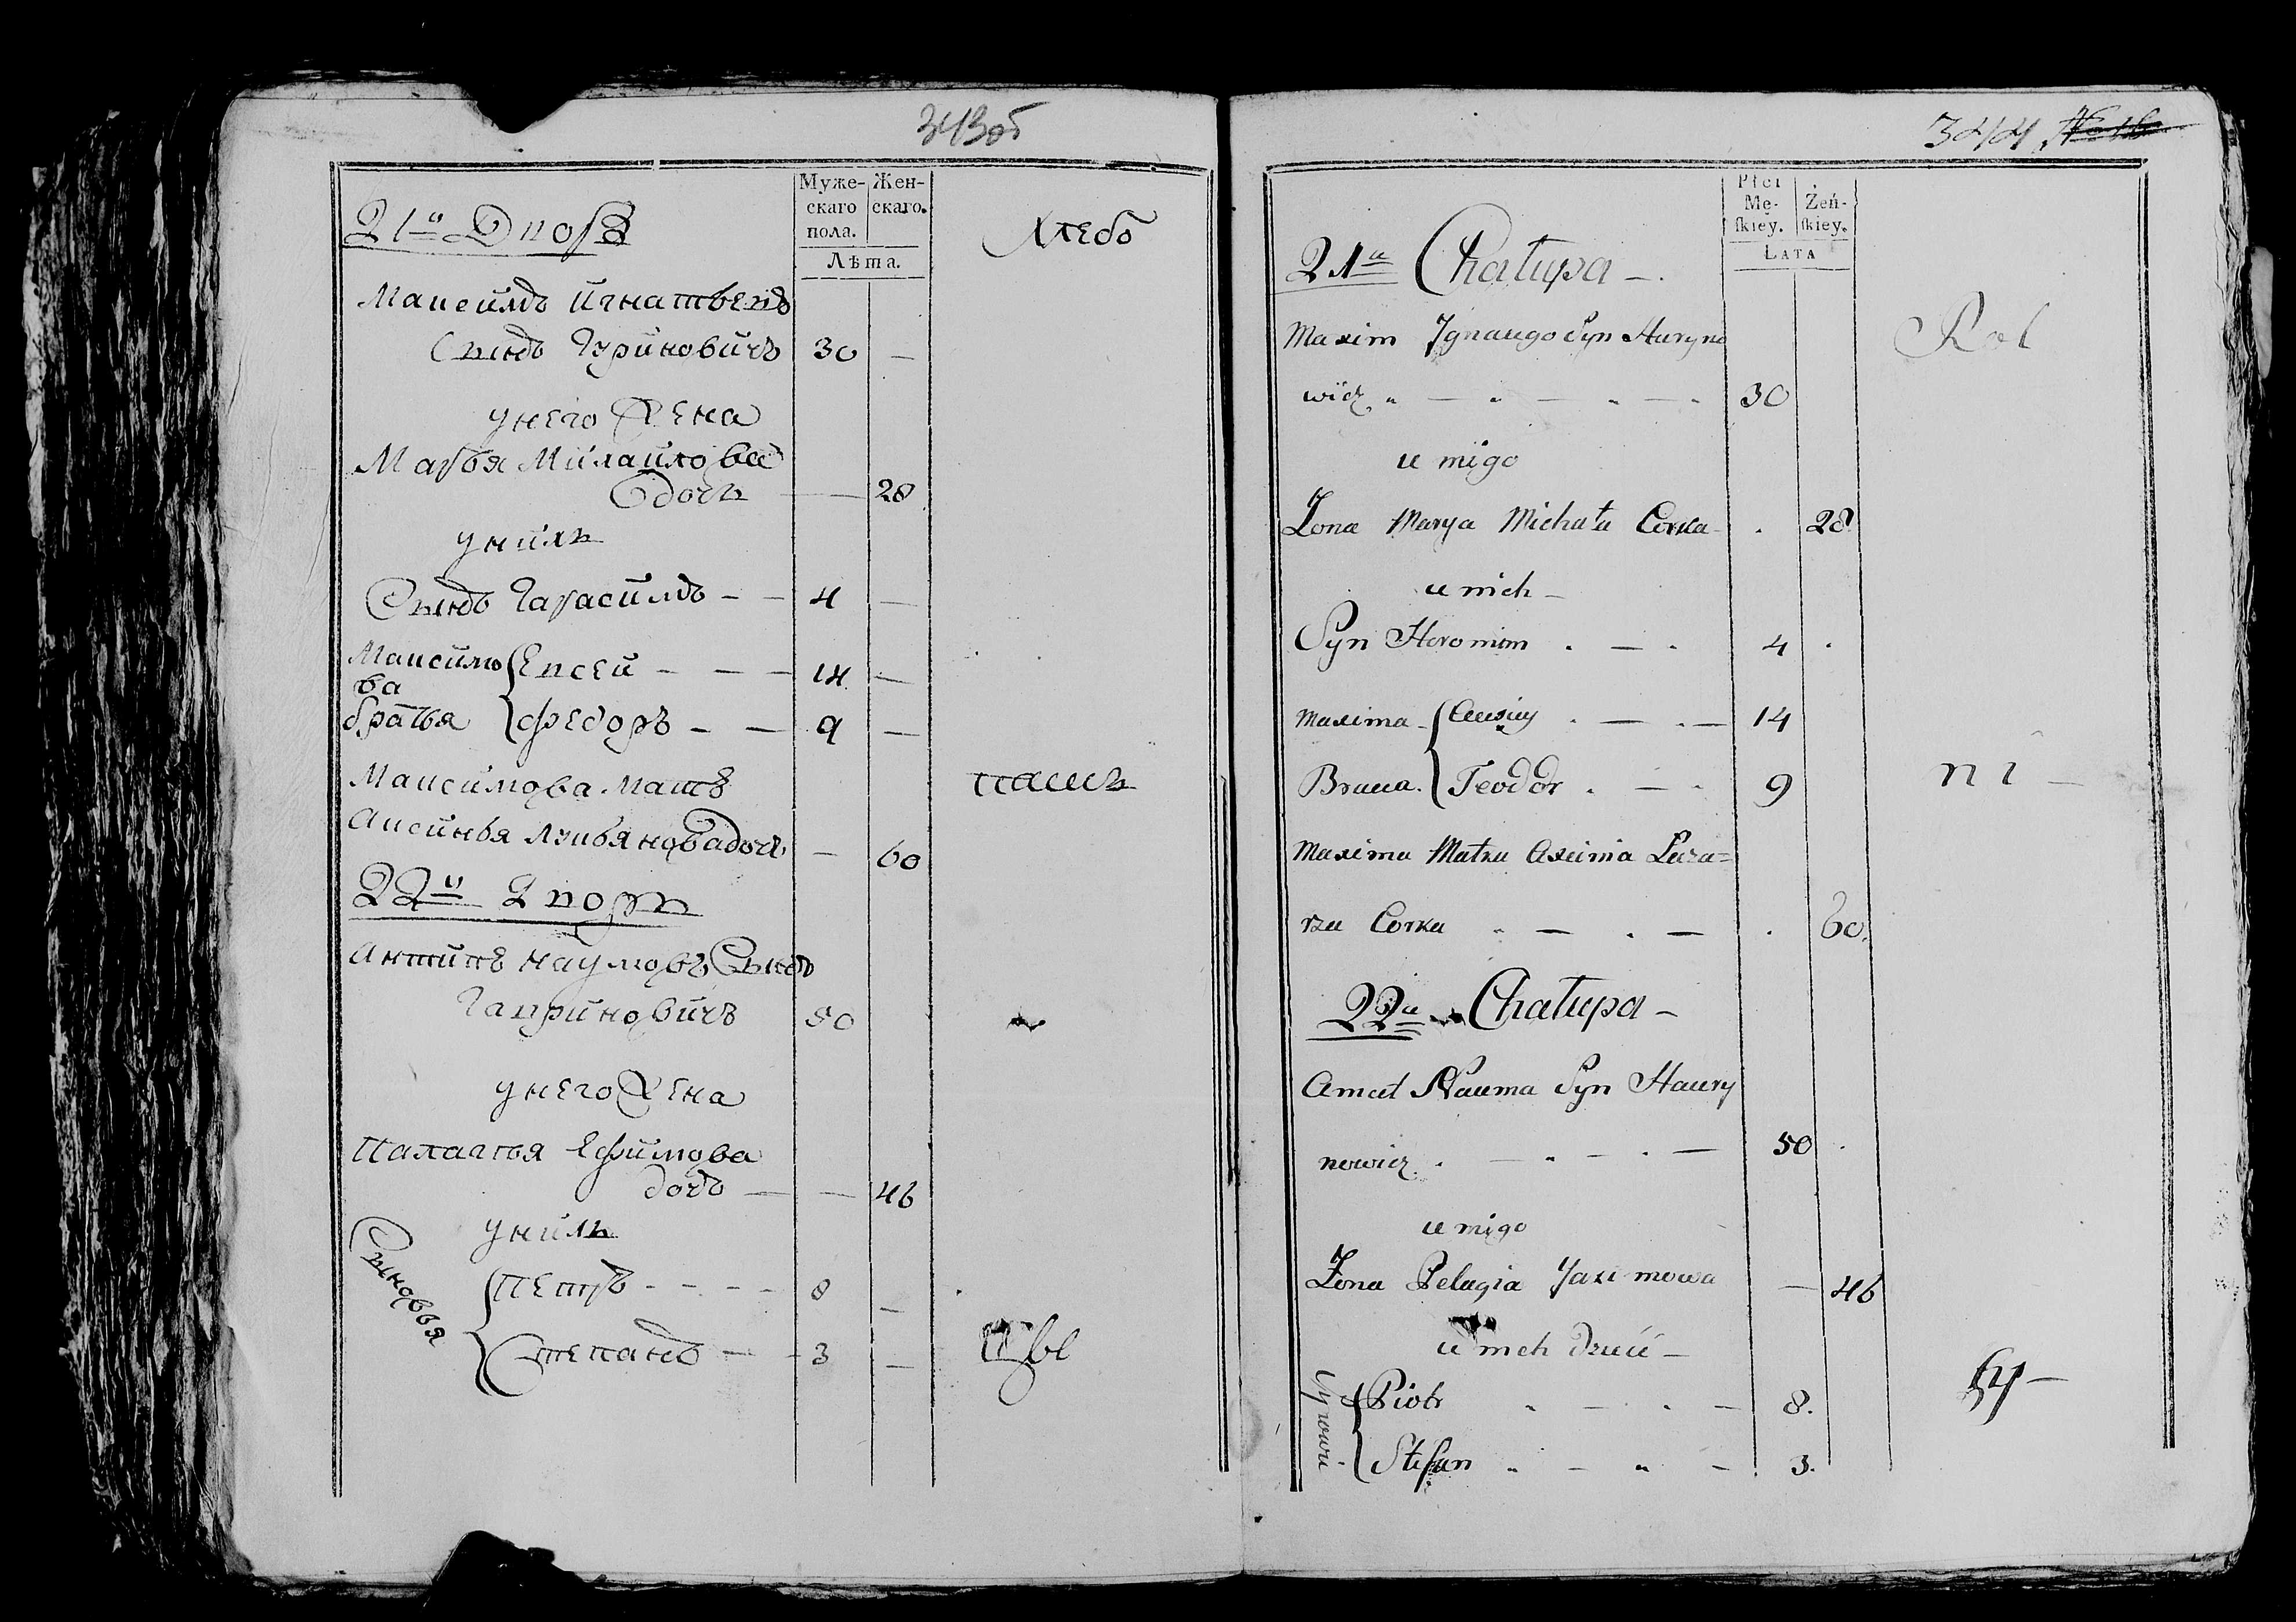 343об
Муже-
скаго
пола.
Жен-
скаго.
Лѣта.
21й Дворъ
Хлебо
Максимъ Игнатьевъ
Сынъ Гуриновичъ 30 —
унего Жена
Марья Михайлова
дочь — 28
унихъ
Сынъ Гарасимъ — — 4 —
Максимо
ва
братья
Евсей — — — 14 —
Федоръ — — 9 —
Максимова Мать
пашц
Аксинья дочь — 60
22й Дворъ
Антипъ Наумовъ Сынъ
Гавриновичъ 50
унего Жена
Палагья Ефимова
дочь — — 46
унихъ
Сыновья
Петръ - - - - 8 —
Степанъ — - 3 —
цы
344
Płci
Mę-
ſkiey.
Żeń-
ſkiey.
Lata
21a Chałupa —.
Rol
Maxim Jgnacego Syn Huryno
wicz „ — „ — „ — „ 30
u niego
Zona Marya Michała Corka . 28.
u nich —
Syn Heronim . — . 4 .
Maxima
Bracia.
. — . — 14
Teodor . — . 9
ni —
Maxima Matka Axinia Łaza=
rza Corka „ — . — . 60.
22a Chałupa —
Nauma Syn Hawry
nowicz . — „ — . — 50 .
u niego
Zona Pelagia Jaximowa — 46
u nich dzieci —
Synowie
Piotr „ — . „ — 8.
Stefan „ — „ — . 3.
cy —